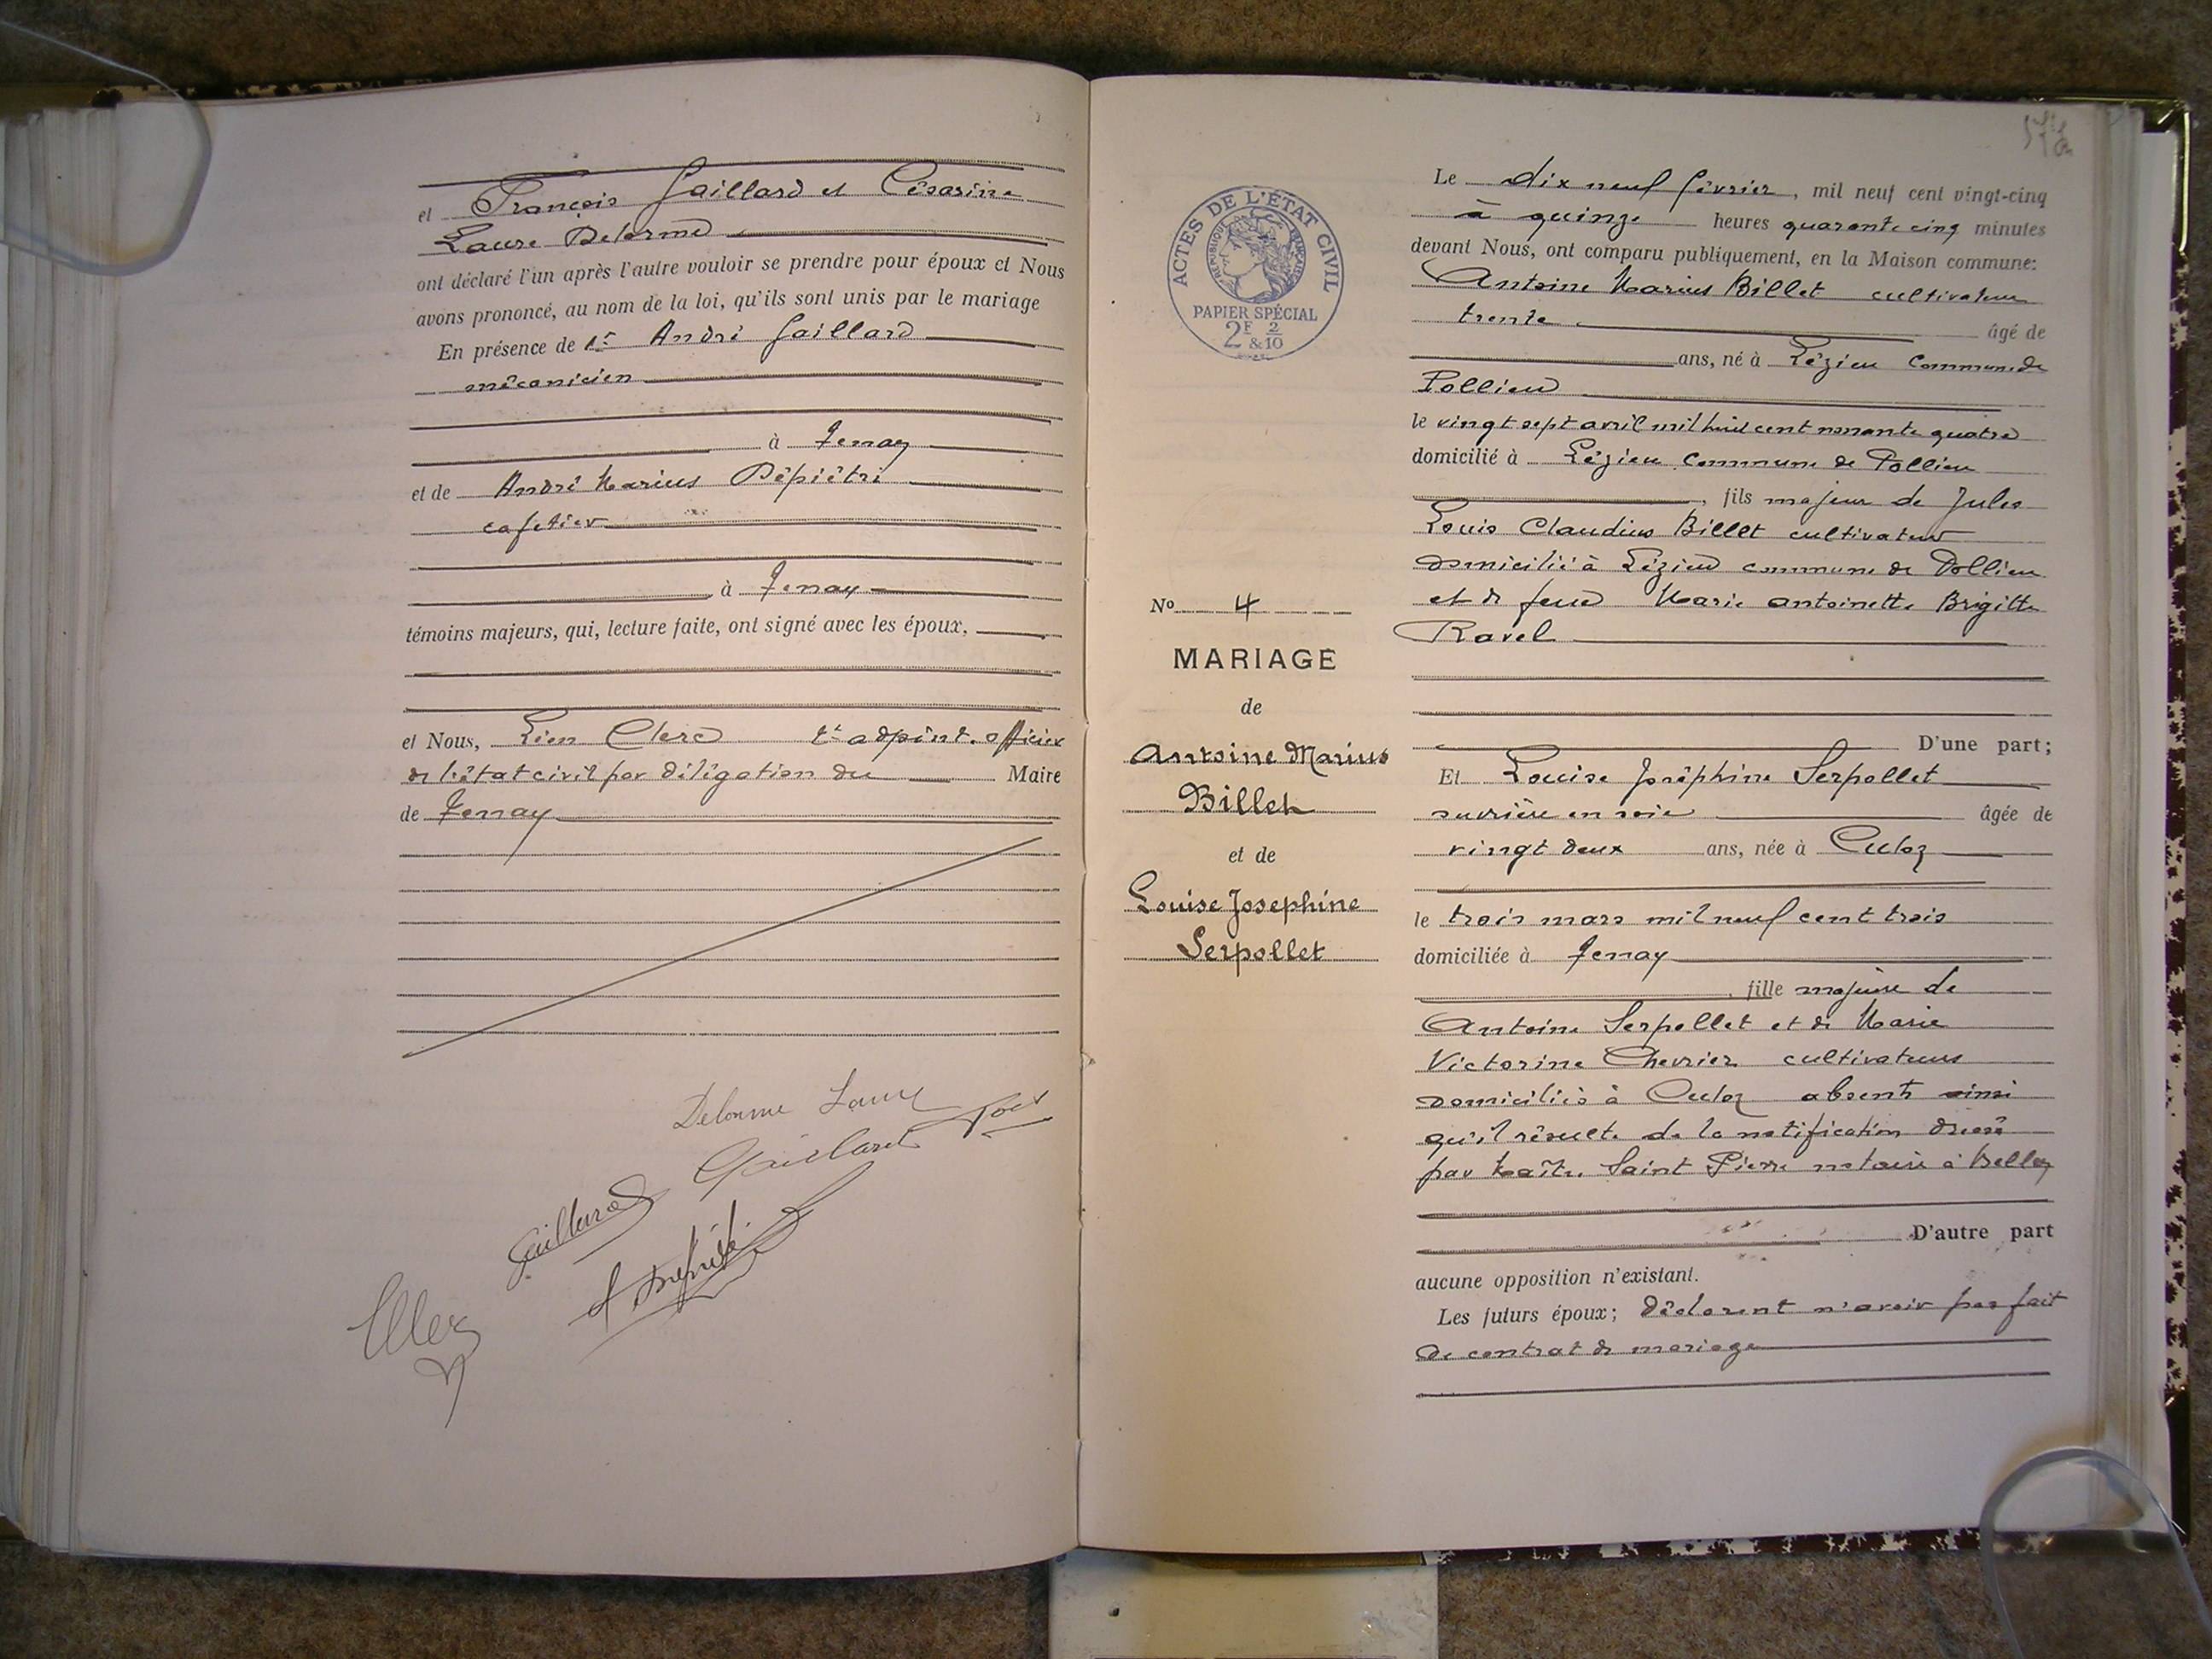 et François Gaillard et Césarine
Laure Delorme
ont déclaré l'un après l'autre vouloir se prendre pour époux et Nous
avons prononcé, au nom de la loi, qu'ils sont unis par le mariage
En présence de André Gaillard
mécanicien
à Tenay
et de André Marius Dépiétri
cafetier
à Tenay
témoins majeurs, qui, lecture faite, ont signé avec les époux,
et Nous, Léon Clerc adjoint officier
de l'état civil par délégation du Maire
de Tenay
Delorme Laure
Gaillard
Gaillard
ACTES DE L'ÉTAT CIVIL
RÉPUBLIQUE FRANÇAISE
PAPIER SPÉCIAL
2F 2
& 10
No 4
MARIAGE
de
Antoine Marius
Billet
et de
Louise Josephine
Serpollet
Le dix neuf février, mil neuf cent vingt-cinq
à quinze heures quarante cinq minutes
devant Nous, ont comparu publiquement, en la Maison commune:
Antoine Marius Billet cultivateur
trente âgé de
ans, né à Lézieu commune de
Pollieu
le vingt sept avril mil huit cent nonante quatre
domicilié à Lézieu commune de Pollieu
, fils majeur de Jules
Louis Claudius Billet cultivateur
domicilié à Lézieu commune de Pollieu
et de feue Marie antoinette Brigitte
Ravel
D'une part;
Et Louise Joséphine Serpollet
ouvrière en soie âgée de
vingt deux ans, née à Culoz
le trois mars mil neuf cent trois
domiciliée à Tenay
, fille majeure de
Antoine Serpollet et de Marie
Victorine Chevrier cultivateurs
domiciliés à Culoz absents ainsi
qu'il résulte de la notification dressée
par Maître Saint Pierre notaire à Belley
D'autre part
aucune opposition n'existant.
Les futurs époux; déclarent n'avoir pas fait
de contrat de mariage